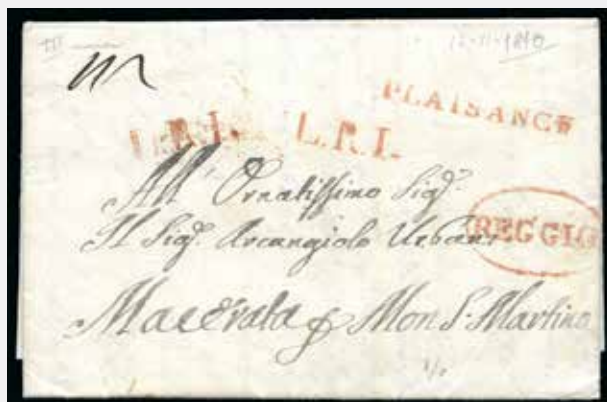 12-11-1810
PLAISANCE
L.R.I. L.R.I.
All' Ornatissimo Sigr.
Il Sigr. Arcangiolo Urbani
REGGIO
Macerata p Mon S. Martino